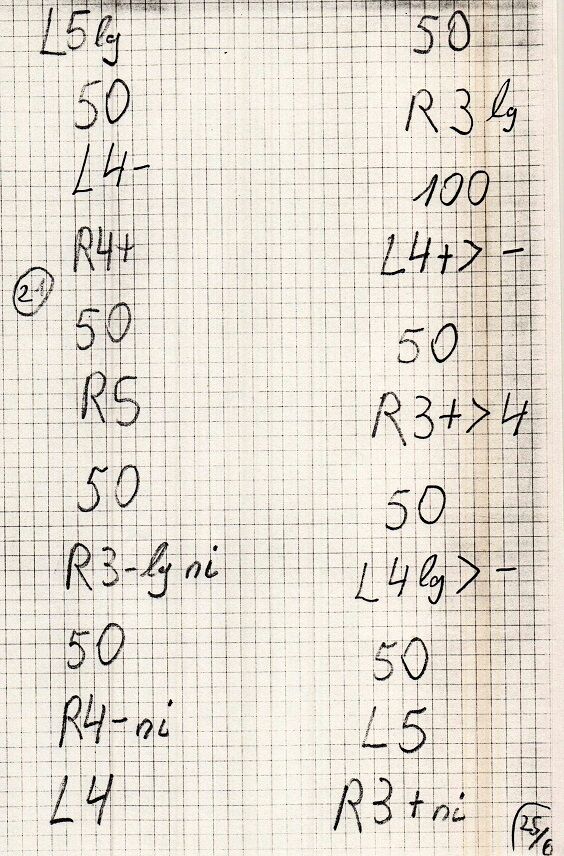 L5 lg
50
L4-
R4+
21
50
R5
50
R3-lg ni
50
R4-ni
L4
50
R3 lg
100
L4+> -
50
R3+>4
50
L4 lg> -
50
L5
R3+ni